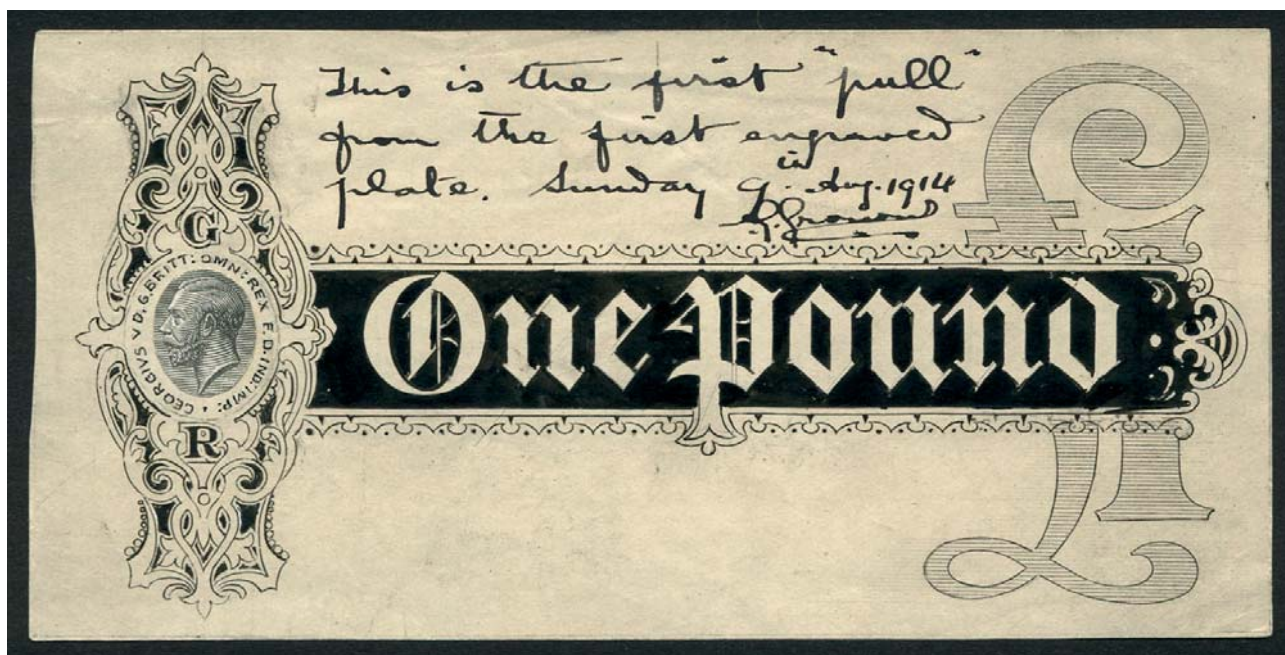 This is the first "pull"
from the first engraved
plate. Sunday 9th Aug. 1914
£1
G
GEORGIVS V D.G.BRITT: OMN: REX F.D.IND:IMP:
One Pound
R